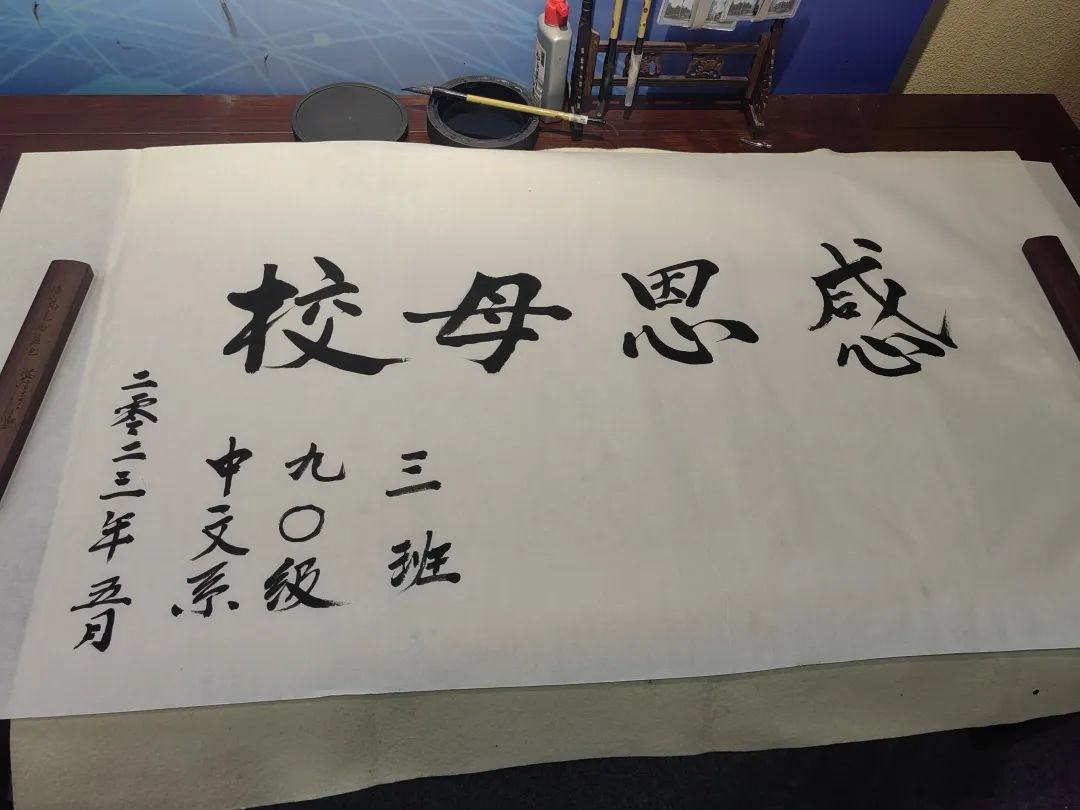 感恩母校
三班
九〇级
中文系
二零二三年五月